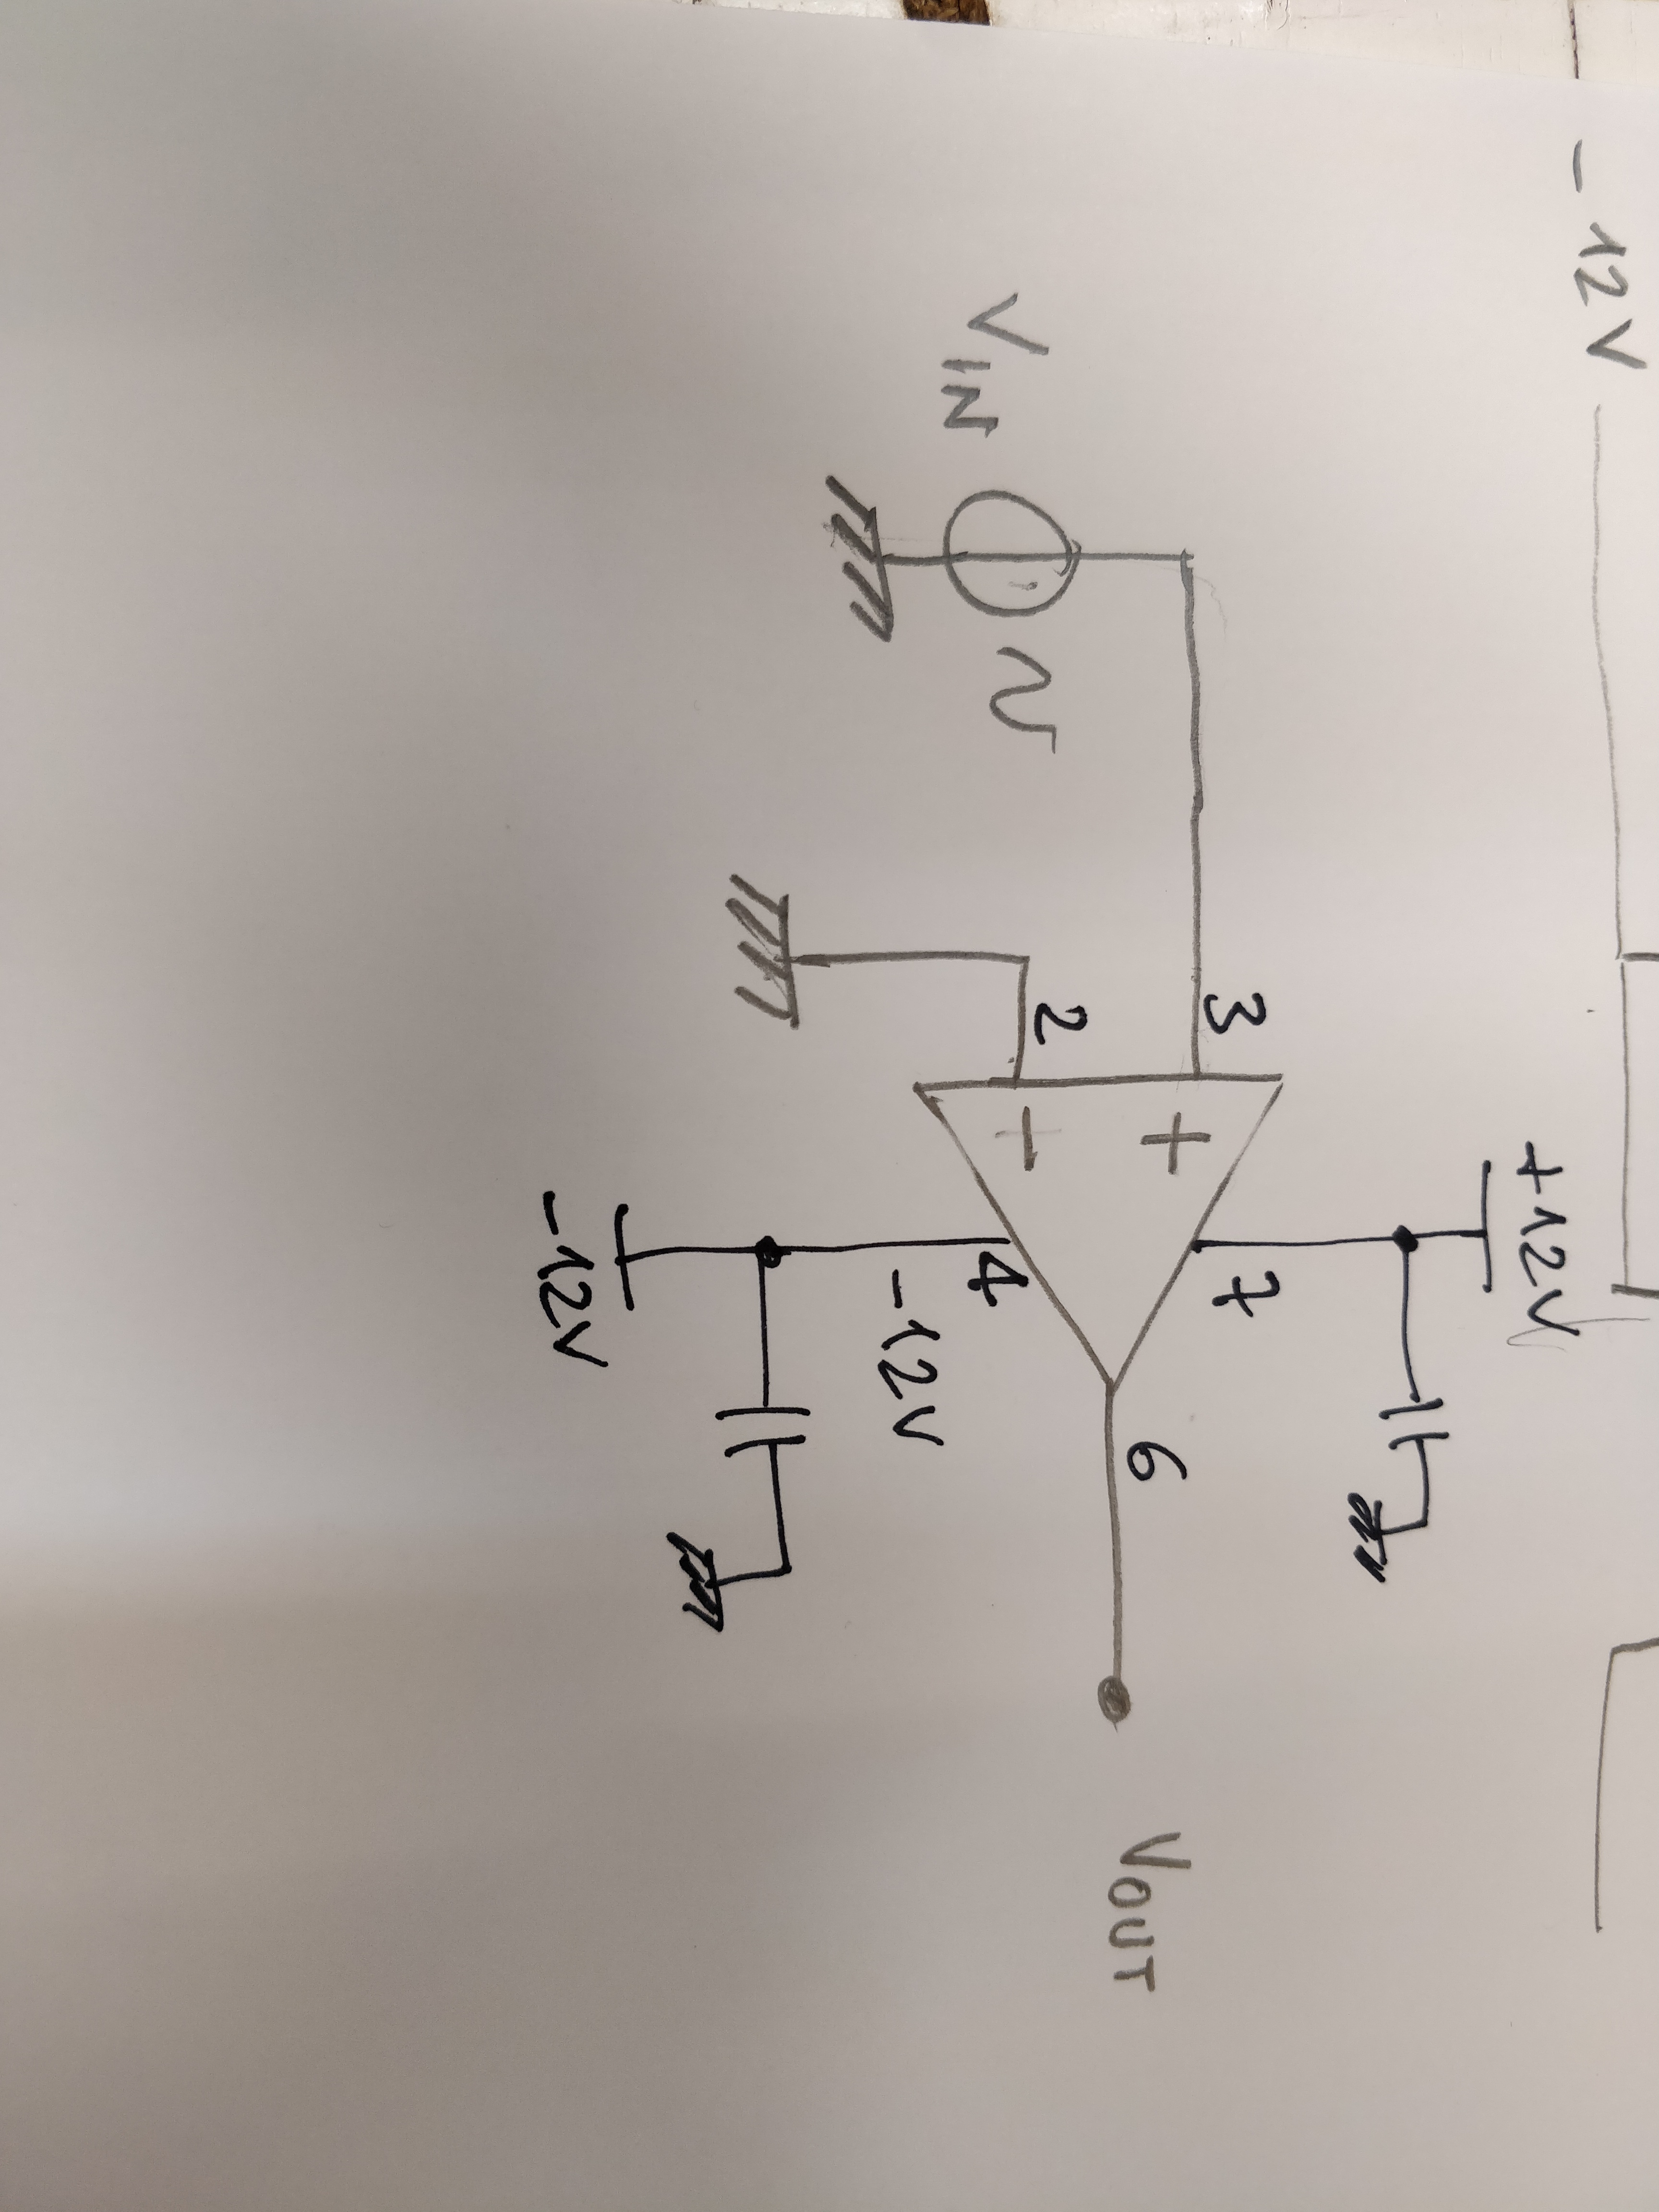 -12V
+12V
3
7
+
6
VOUT
2
-
4
VIN
-12V
-12V